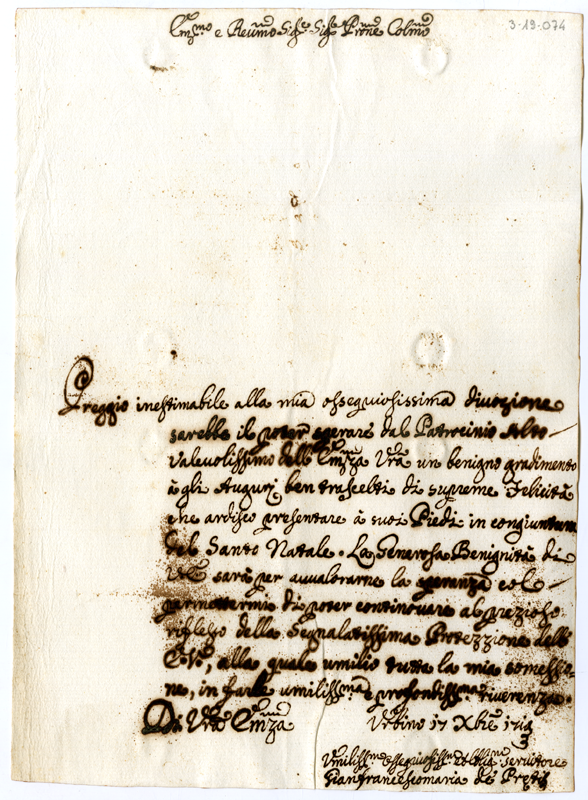 3-19-074
Em̃mo e Reũmo Sig.e Sig.e Prone Colmo
Preggio inestimabile alla mia ossequiosissima divozione
sarebbe il poter sperare dal Patrocinio Alto
valevolissimo dell' Em̃za Vrã un benigno gradimento
à gli Augurj ben trascelti di supreme Felicità
che ardisco presentare à suoi Piedi in congiuntura
del Santo Natale. La Generosa Benignità di
V.E. sarà per avvalorarne la speranza col
permettermi di poter continovare al prezioso
riflesso della Segnalatissima Protezzione dell'
E.V., alla quale umilio tutta la mia somessio-
ne, in farle umiliss.ma e profondiss.ma riverenza.
Di Vrã Em̃za Urbino 17 Xbre 171
3
Umiliss.mo ossequiosiss.mo servitore
Gianfrancescomaria de Pretis